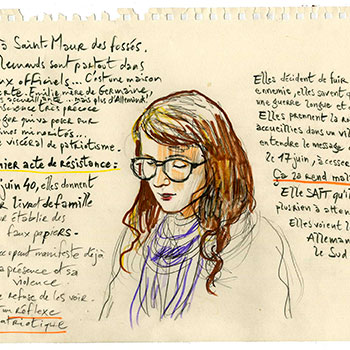 à Saint Maur des fossés.
llemands sont partout dans
ux officiels... C'est une maison
erte. Emilie, mère de Germaine,
accueillante... mais plus d'Allemand!
science très précoce
que va poser sur
ines minorités...
viscéral de patriotisme.
mier acte de résistance:
juin 40, elles donnent
ur livret de famille
r établir des
faux papiers-
ccupant manifeste déjà
a présence et sa
violence.
refuse de les voir.
un réflexe
atriotique
Elles décident de fuir
ennemie, elles savent q
une guerre longue et
Elles prennent la ro
accueillies dans un vil
entendre le message
le 17 juin, à cesse
Ça la rend mal
Elle SAIT qu'i
plus rien à atten
Elles voient l
Allemand
le Sud